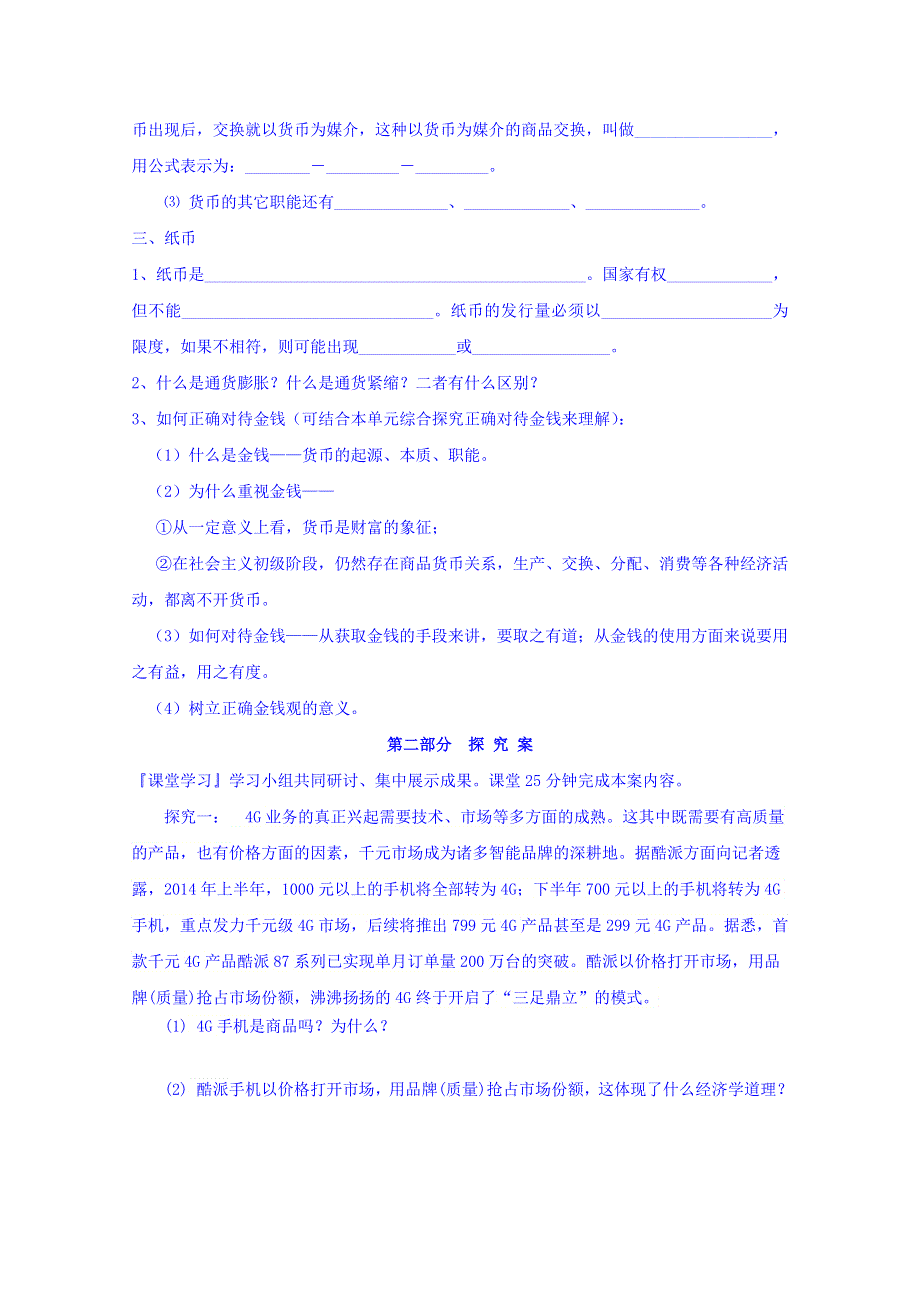 币出现后，交换就以货币为媒介，这种以货币为媒介的商品交换，叫做_________________，
用公式表示为：________－_________－_________。
⑶ 货币的其它职能还有______________、_____________、______________。
三、纸币
1、纸币是_______________________________________________。国家有权_____________，
但不能_______________________________。纸币的发行量必须以_____________________为
限度，如果不相符，则可能出现____________或_________________。
2、什么是通货膨胀？什么是通货紧缩？二者有什么区别？
3、如何正确对待金钱（可结合本单元综合探究正确对待金钱来理解）：
（1）什么是金钱——货币的起源、本质、职能。
（2）为什么重视金钱——
①从一定意义上看，货币是财富的象征；
②在社会主义初级阶段，仍然存在商品货币关系，生产、交换、分配、消费等各种经济活
动，都离不开货币。
（3）如何对待金钱——从获取金钱的手段来讲，要取之有道；从金钱的使用方面来说要用
之有益，用之有度。
（4）树立正确金钱观的意义。
第二部分 探 究 案
『课堂学习』学习小组共同研讨、集中展示成果。课堂 25 分钟完成本案内容。
探究一： 4G 业务的真正兴起需要技术、市场等多方面的成熟。这其中既需要有高质量
的产品，也有价格方面的因素，千元市场成为诸多智能品牌的深耕地。据酷派方面向记者透
露，2014 年上半年，1000 元以上的手机将全部转为 4G；下半年 700 元以上的手机将转为 4G
手机，重点发力千元级 4G 市场，后续将推出 799 元 4G 产品甚至是 299 元 4G 产品。据悉，首
款千元 4G 产品酷派 87 系列已实现单月订单量 200 万台的突破。酷派以价格打开市场，用品
牌(质量)抢占市场份额，沸沸扬扬的 4G 终于开启了“三足鼎立”的模式。
(1) 4G 手机是商品吗？为什么？
(2) 酷派手机以价格打开市场，用品牌(质量)抢占市场份额，这体现了什么经济学道理？